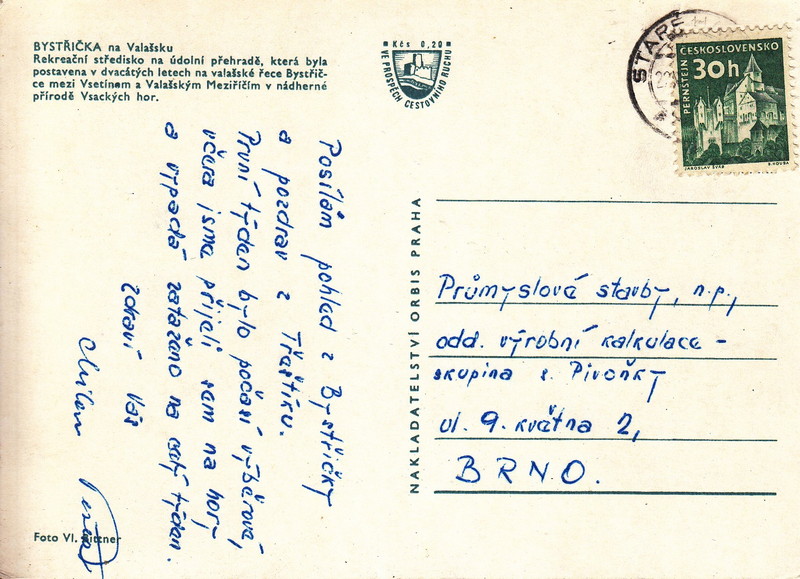 BYSTŘIČKA na Valašsku
Rekreační středisko na údolní přehradě, která byla
postavena v dvacátých letech na valašské řece Bystřič-
ce mezi Vsetínem a Valašským Meziříčím v nádherné
přírodě Vsackých hor.
Kčs 0,20
VE PROSPĚCH CESTOVNÍHO RUCHU
STARÉ
ČESKOSLOVENSKO
30h
PERNŠTEJN
JAROSLAV ŠVÁB
Posílám pohled z Bystřičky
a pozdrav z Třaštíku.
První týden bylo počasí výběrové,
včera jsme přijeli sem na hory
a vypadá zataženo na celý týden.
Zdraví Vás
Milan
NAKLADATELSTVÍ ORBIS PRAHA
Průmyslové stavby, n.p.,
odd. výrobní kalkulace -
skupina s. Pivoňky
ul. 9. května 2,
BRNO.
Foto Vl. Bittner